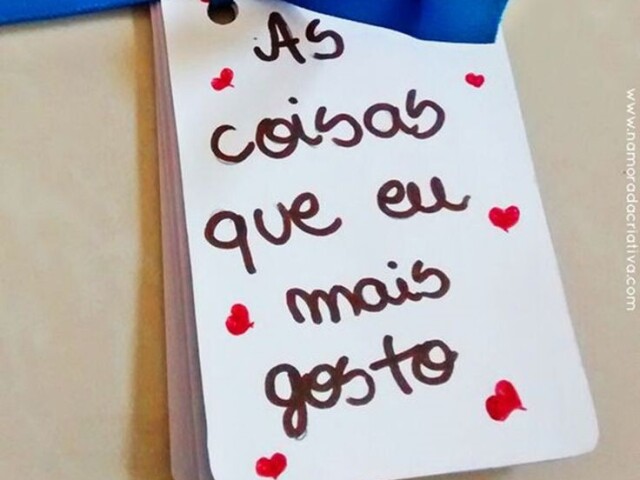 As
coisas
que eu
mais
gosto
www.namoradacriativa.com